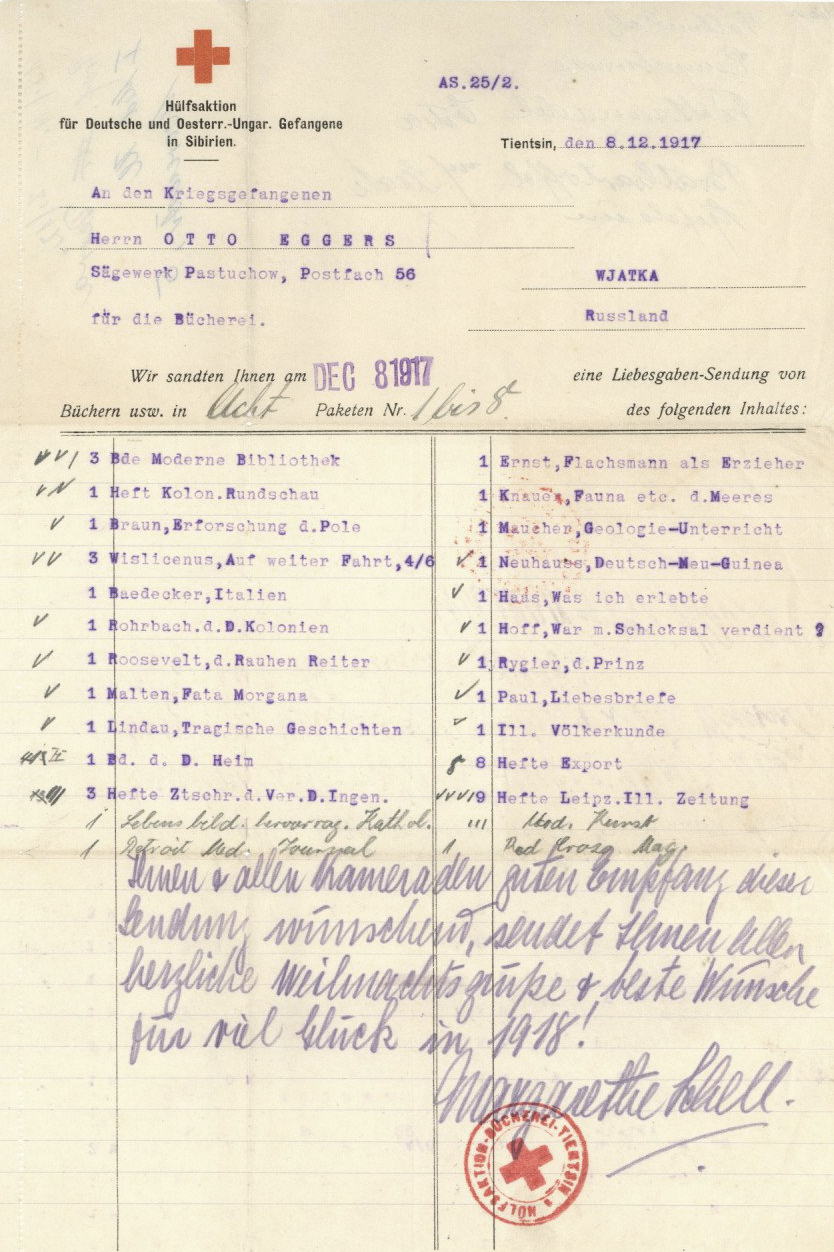 AS.25/2.
Hülfsaktion
für Deutsche und Oesterr.-Ungar. Gefangene
in Sibirien.
Tientsin, den 8.12.1917
An den Kriegsgefangenen
Herrn OTTO EGGERS
Sägewerk Pastuchow, Postfach 56
WJATKA
für die Bücherei.
Russland
Wir sandten Ihnen am DEC 8 1917 eine Liebesgaben-Sendung von
Büchern usw. in Acht Paketen Nr. 1 bis 8. des folgenden Inhaltes:
3 Bde Moderne Bibliothek
1 Heft Kolon.Rundschau
1 Braun,Erforschung d.Pole
3 Wislicenus,Auf weiter Fahrt,4/6
1 Baedecker,Italien
1 Rohrbach.d.D.Kolonien
1 Roosevelt,d.Rauhen Reiter
1 Malten,Fata Morgana
1 Lindau,Tragische Geschichten
1 Bd. d. D. Heim
3 Hefte Ztschr.d.Ver.D.Ingen.
1 Lebensbild. hervorrag. Kathol.
1 Detroit Med. Journal
1 Ernst,Flachsmann als Erzieher
1 Knauer,Fauna etc. d.Meeres
1 Maucher,Geologie-Unterricht
1 Neuhauss,Deutsch-Neu-Guinea
1 Haas,Was ich erlebte
1 Hoff,War m.Schicksal verdient ?
1 Rygier,d.Prinz
1 Paul,Liebesbriefe
1 Ill. Völkerkunde
8 8 Hefte Export
9 Hefte Leipz.Ill. Zeitung
III Mod. Kunst
1 Red Cross Mag.
Ihnen & allen Kameraden guten Empfang dieser
Sendung wünschend, sendet Ihnen Allen
herzliche Weihnachtsgrüße & beste Wünsche
für viel Glück in 1918!
Margarethe Schell.
HÜLFSAKTION-BÜCHEREI-TIENTSIN